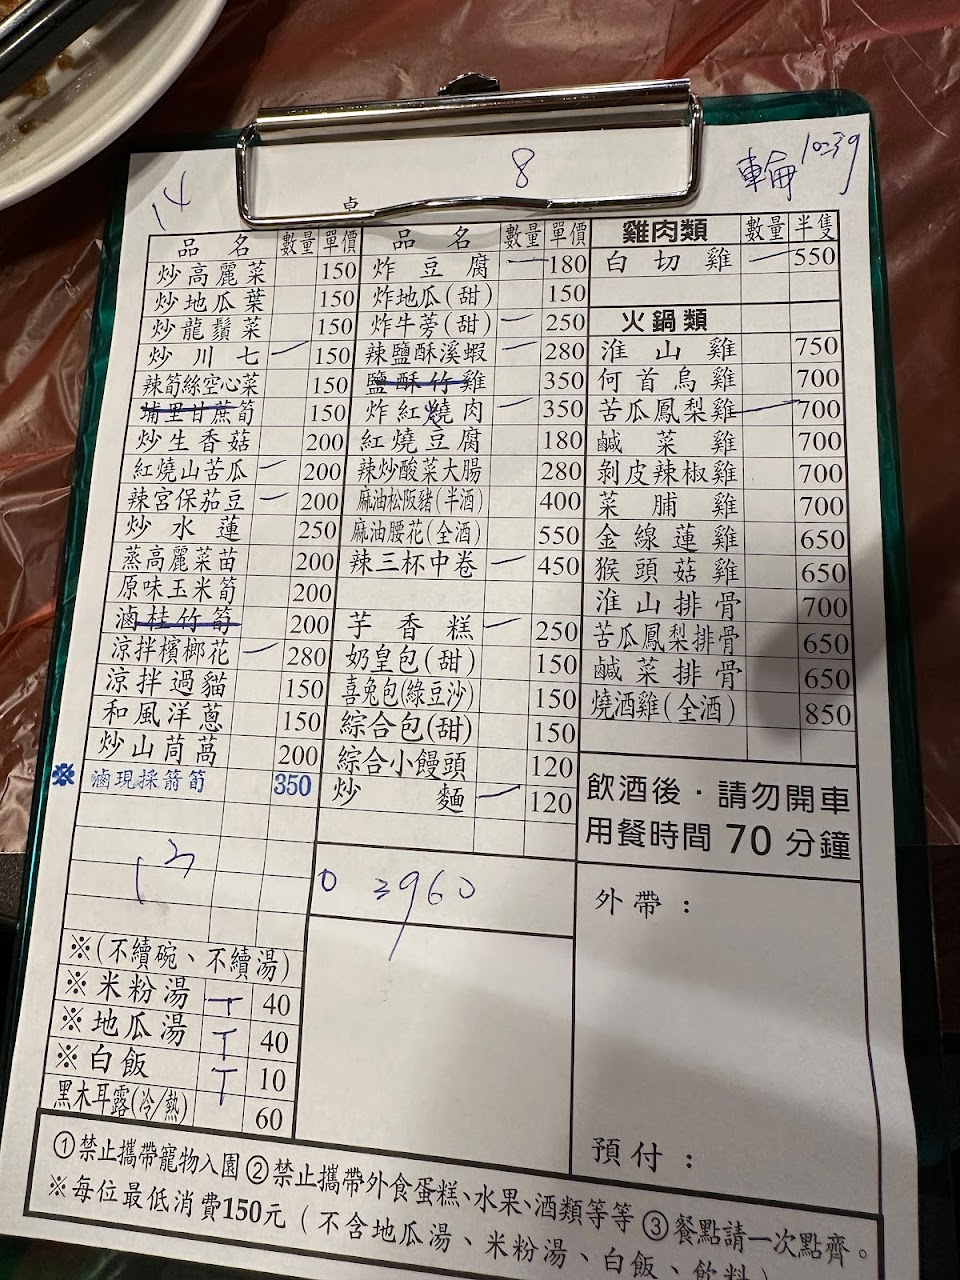 14
8
輪 10:39
桌
品名 數量 單價
炒高麗菜 150
炒地瓜葉 150
炒龍鬚菜 150
炒川七 一 150
辣筍絲空心菜 150
埔里甘蔗筍 150
炒生香菇 200
紅燒山苦瓜 一 200
辣宮保茄豆 一 200
炒水蓮 250
蒸高麗菜苗 200
原味玉米筍 200
滷桂竹筍 200
涼拌檳榔花 一 280
涼拌過貓 150
和風洋蔥 150
炒山茼萵 200
※ 滷現採箭筍 350
13
※(不續碗、不續湯)
※米粉湯 T 40
※地瓜湯 T 40
※白飯 T 10
黑木耳露(冷/熱) 60
品名 數量 單價
炸豆腐 一 180
炸地瓜(甜) 150
炸牛蒡(甜) 一 250
辣鹽酥溪蝦 一 280
鹽酥竹雞 350
炸紅燒肉 一 350
紅燒豆腐 180
辣炒酸菜大腸 280
麻油松阪豬(半酒) 400
麻油腰花(全酒) 550
辣三杯中卷 一 450
芋香糕 一 250
奶皇包(甜) 150
喜兔包(綠豆沙) 150
綜合包(甜) 150
綜合小饅頭 120
炒麵 一 120
0 3960
雞肉類 數量 半隻
白切雞 一 550
火鍋類
淮山雞 750
何首烏雞 700
苦瓜鳳梨雞 一 700
鹹菜雞 700
剝皮辣椒雞 700
菜脯雞 700
金線蓮雞 650
猴頭菇雞 650
淮山排骨 700
苦瓜鳳梨排骨 650
鹹菜排骨 650
燒酒雞(全酒) 850
飲酒後．請勿開車
用餐時間 70 分鐘
外帶：
預付：
①禁止攜帶寵物入園②禁止攜帶外食蛋糕、水果、酒類等等③餐點請一次點齊。
※每位最低消費150元(不含地瓜湯、米粉湯、白飯、飲料)